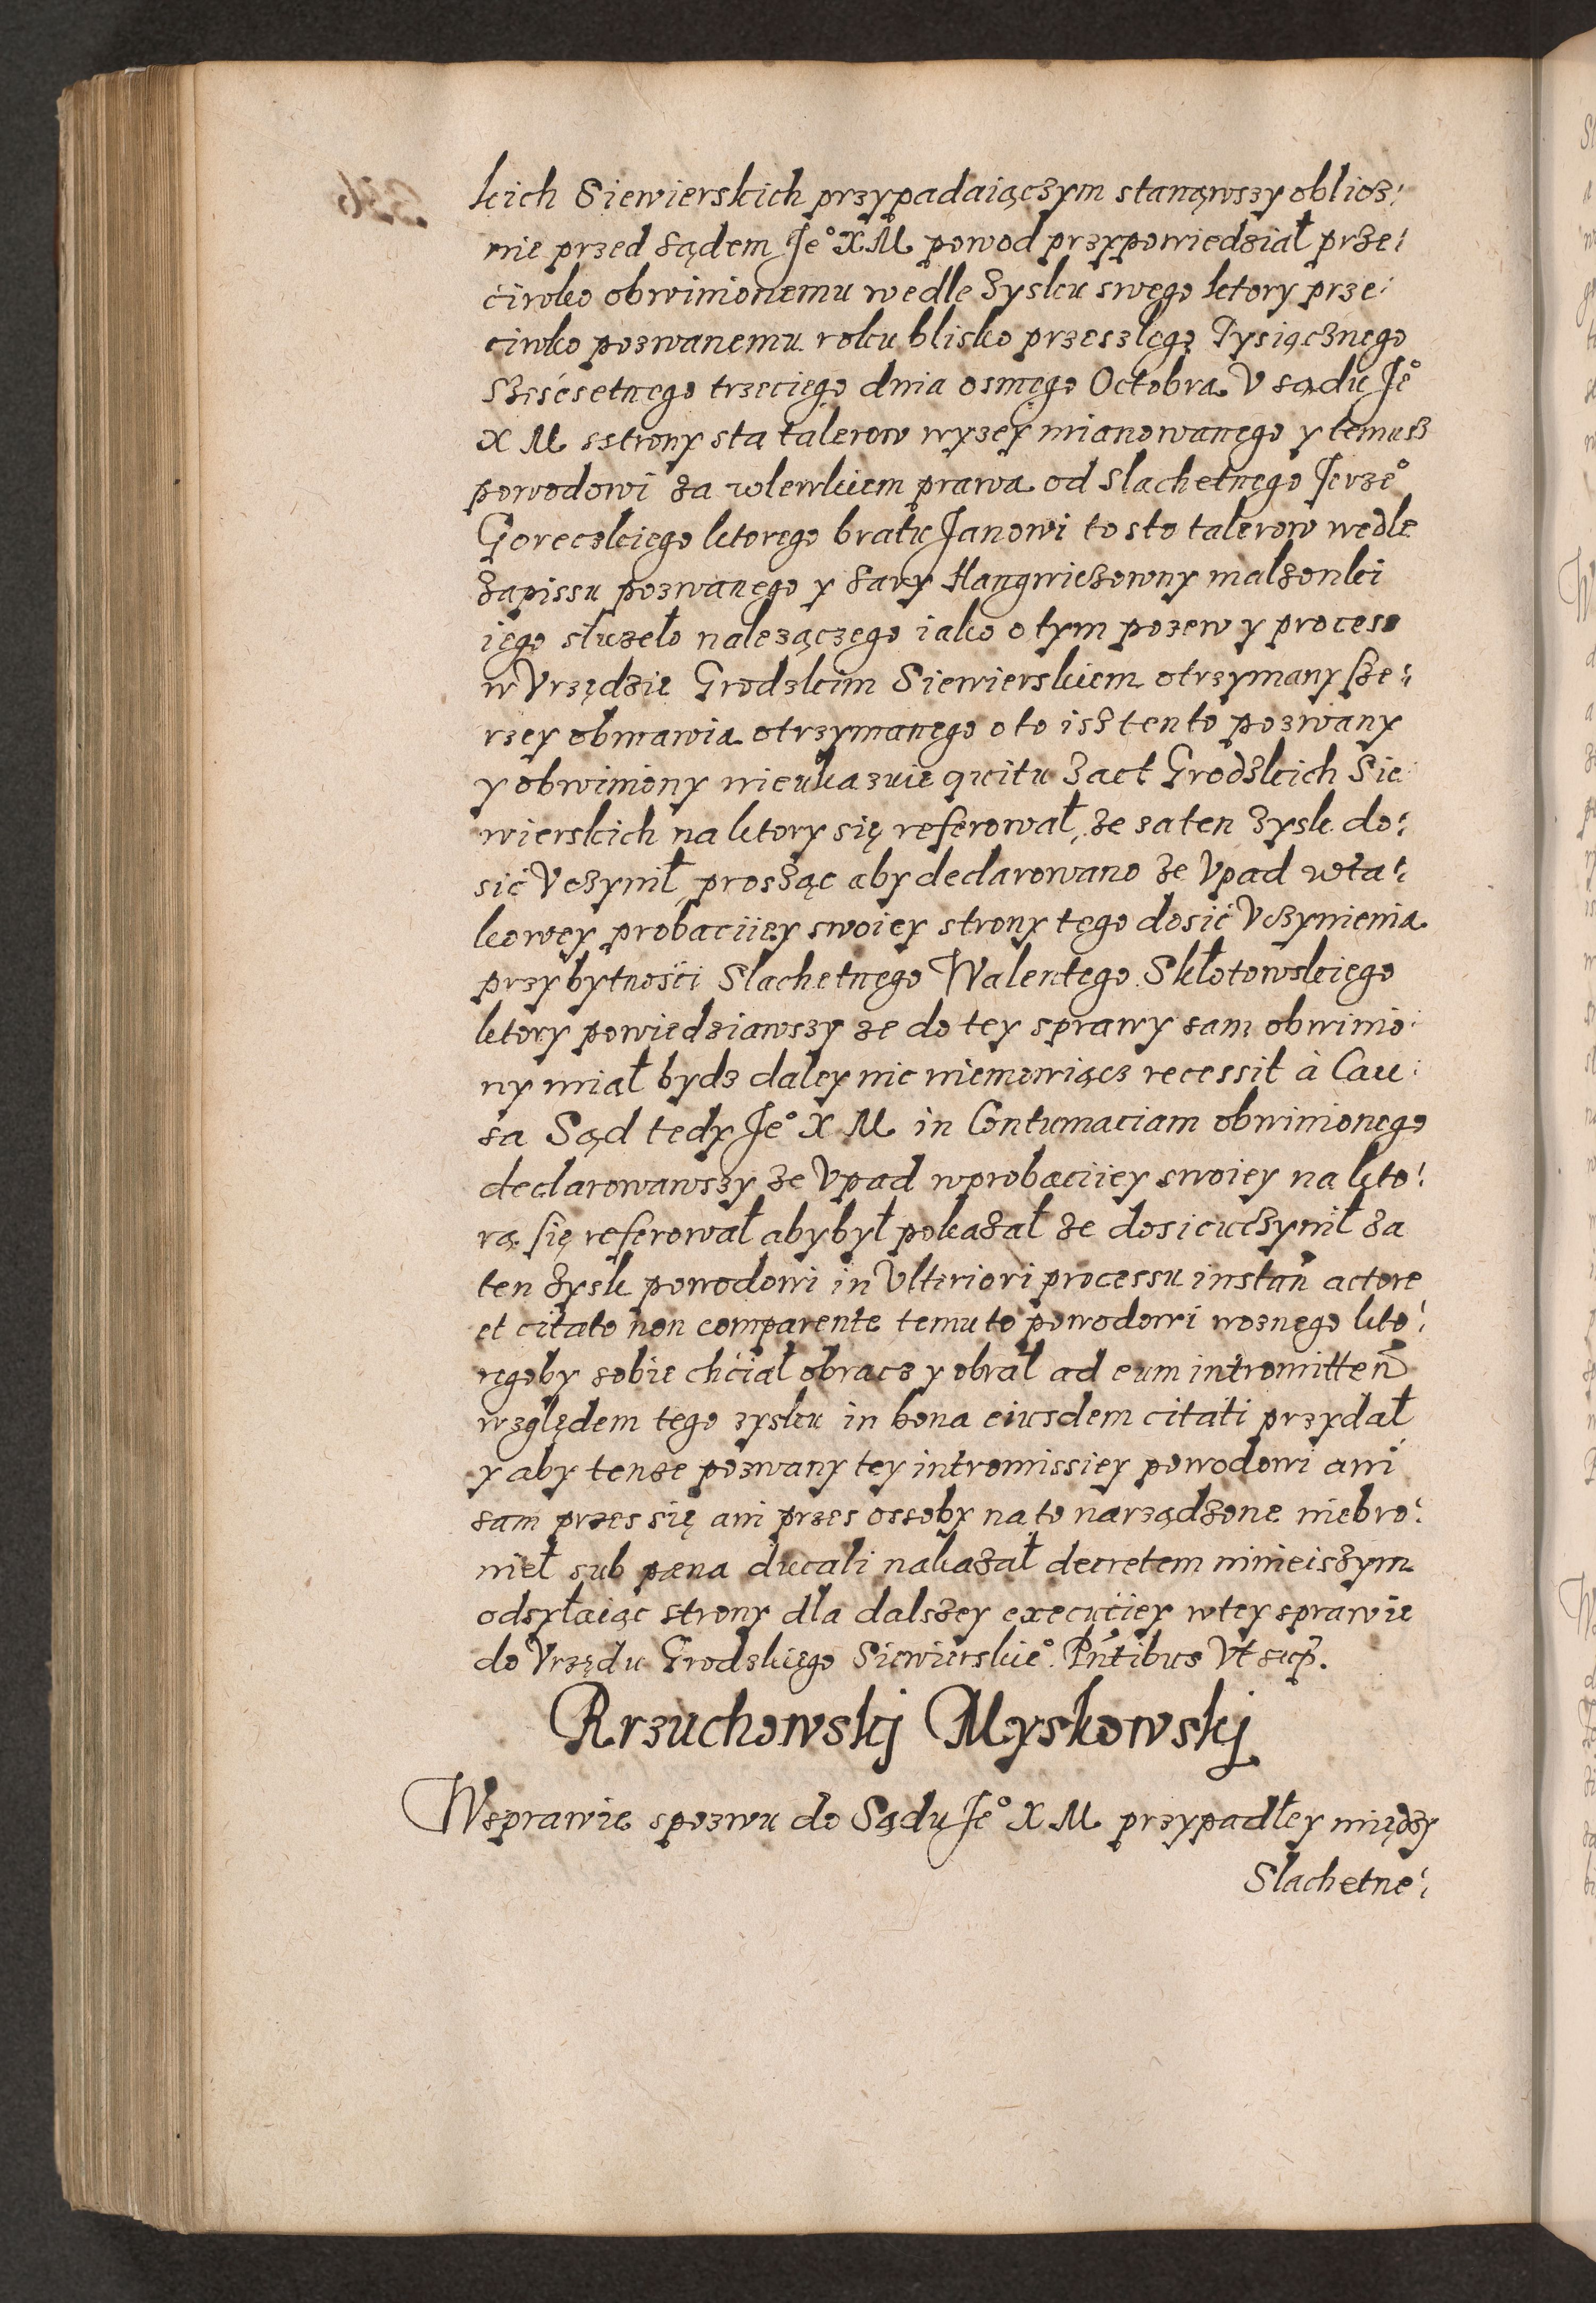 kich Siewierskich przypadaiączym stanąwszy oblicz:
nie przed sądem Je° X M powod przypowiedział prze:
ciwko obwinionemu wedle zysku swego ktory prze:
ciwko pozwanemu roku blisko przeszlego Tysiącznego
Szescsetnego trzeciego dnia osmego Octobra V sądu Je°
X M sstrony sta talerow wyzey mianowanego y temusz
powodowi za wlewkiem prawa od Slachetnego Jerze°
Goreczkiego ktorego bratu Janowi to sto talerow wedle
zapissu pozwanego y Sary Hangwiczowny malzonki
iego służeło nalezączego iako o tym pozew y process
w Vrzędzie Grodzkim Siewierskiem otrzymany sze:
rzey obmawia otrzymanego o to isz tento pozwany
y obwiniony nieukazuie quitu z act Grodzkich Sie:
wierskich na ktory się referował, ze za ten zysk do:
sić Vczynił, prosząc aby declarowano ze Vpad wta:
kowey probaciiey swoiey strony tego dosić Vczynienia
przy bytności Slachetnego Walentego Skłotowskiego
ktory powiedziawszy ze do tey sprawy sam obwinio:
ny miał bydz daley nic niemowiącz recessit à Cau:
sa Sąd tedy Je° X M in Contumaciam obwinionego
declarowawszy ze Vpad wprobaciiey swoiey na kto:
rą się referował aby był pokazał ze dosicuczynił za
ten zysk powodowi in Vlteriori processu instan̄ actore
et citato non comparente temu to powodowi woznego kto:
regoby sobie chciał obracz y obrał ad eum intromitten̄
względem tego zysku in bona eiusdem citati przydał
y aby tenze pozwany tey intromissiey powodowi ani
sam przes się ani przes ossoby na to narządzone niebro:
nieł sub pæna ducali nakazał decretem ninieiszym
odsyłaiąc strony dla dalszey execuciey wtey sprawie
do Vrzędu Grodzkiego Siewierskie°. Pn̄tibus Vt sup̄.
Rrzuchowskj Myskowskj
Wsprawie spozwu do Sądu Je° X M przypadłey między
Slachetne: